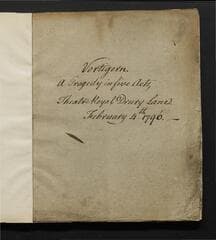 Vortigern.
A Tragedy in five Acts,
Theatre Royal Drury Lane
February 4th 1796. —